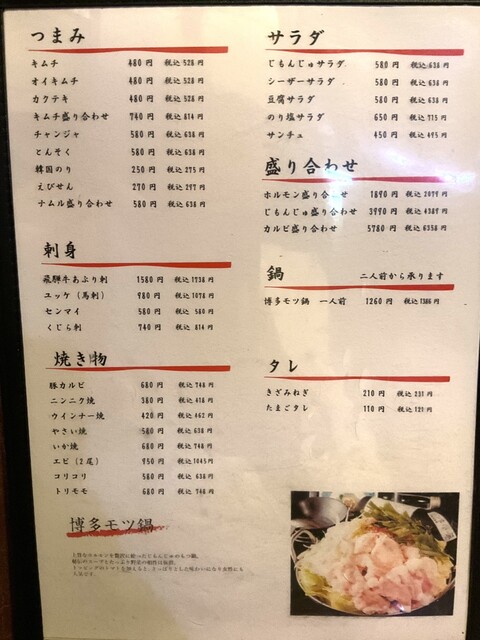 つまみ
キムチ 480円 税込528円
オイキムチ 480円 税込528円
カクテキ 480円 税込528円
キムチ盛り合わせ 740円 税込814円
チャンジャ 580円 税込638円
とんそく 580円 税込638円
韓国のり 250円 税込275円
えびせん 270円 税込297円
ナムル盛り合わせ 580円 税込638円
刺身
飛騨牛あぶり刺 1580円 税込1738円
ユッケ（馬刺） 980円 税込1078円
センマイ 580円 税込580円
くじら刺 740円 税込814円
焼き物
豚カルビ 680円 税込748円
ニンニク焼 380円 税込418円
ウインナー焼 420円 税込462円
やさい焼 580円 税込638円
いか焼 680円 税込748円
エビ（2尾） 950円 税込1045円
コリコリ 580円 税込638円
トリモモ 680円 税込748円
博多モツ鍋
サラダ
じもんじゅサラダ 580円 税込638円
シーザーサラダ 580円 税込638円
豆腐サラダ 580円 税込638円
のり塩サラダ 650円 税込715円
サンチュ 450円 税込495円
盛り合わせ
ホルモン盛り合わせ 1890円 税込2079円
じもんじゅ盛り合わせ 3990円 税込4389円
カルビ盛り合わせ 5780円 税込6358円
鍋 二人前から承ります
博多モツ鍋 一人前 1260円 税込1386円
タレ
きざみねぎ 210円 税込231円
たまごタレ 110円 税込121円